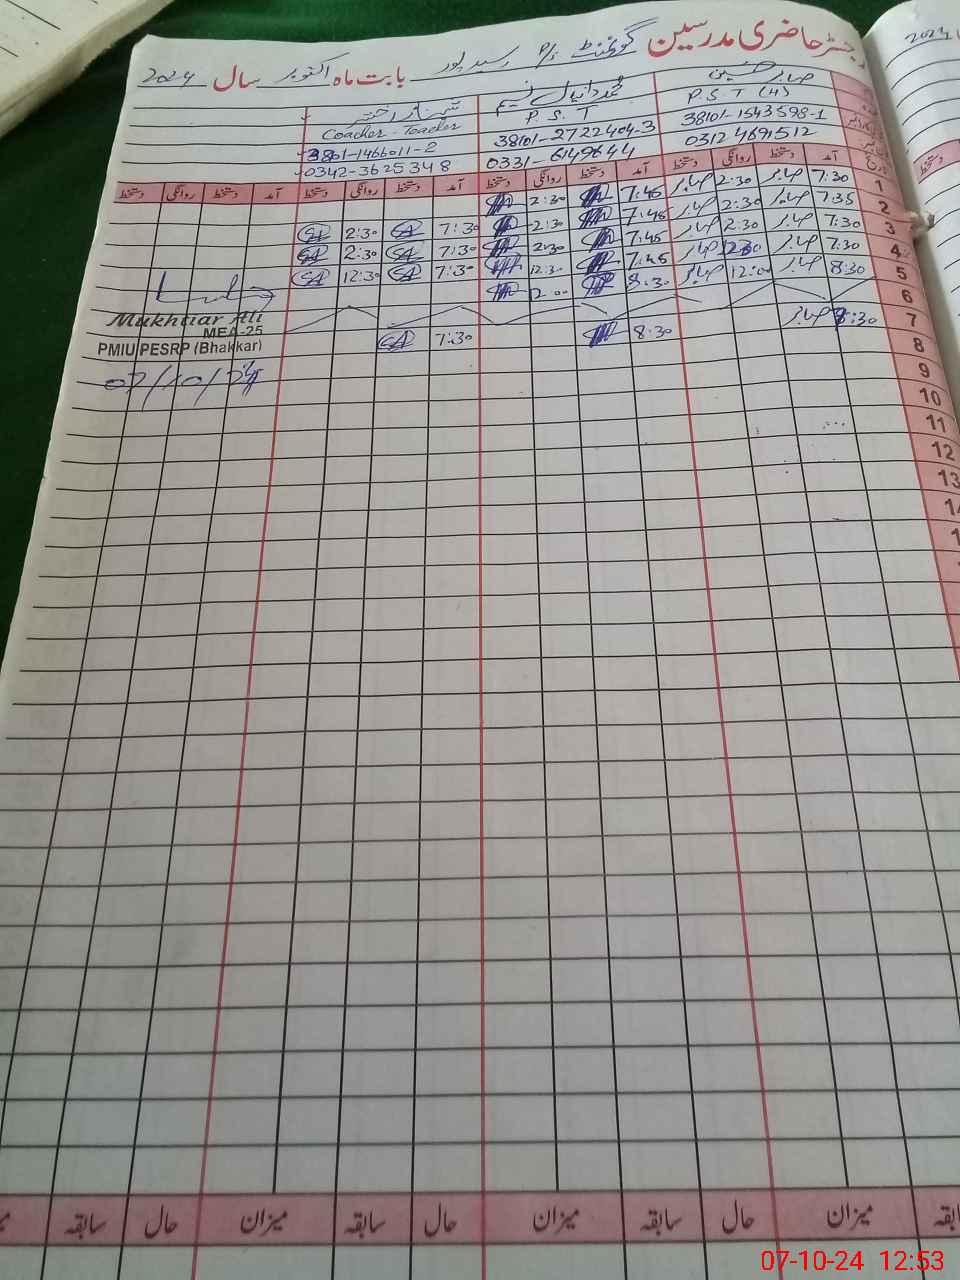 رجسٹر حاضری مدرسین گورنمنٹ P/S رسید پور بابت ماہ اکتوبر سال 2024
صابر حسین
P.S.T (H)
38101-1543598-1
0312 4691512
محمد دانیال نسیم
P.S.T
38101-2722404-3
0331-6149644
شہناز اختر
Coacher-Teacher
38101-1466011-2
0342-3625348
آمد دستخط روانگی دستخط آمد دستخط روانگی دستخط آمد دستخط روانگی دستخط آمد دستخط روانگی دستخط
1 7:30 صابر 2:30 صابر 7:45 2:30
2 7:35 صابر 2:30 صابر 7:45 2:30 7:30 SA 2:30 SA
3 7:30 صابر 2:30 صابر 7:45 2:30 7:30 SA 2:30 SA
4 7:30 صابر 12:30 صابر 7:45 12:30 7:30 SA 12:30 SA
5 8:30 صابر 12:00 صابر 8:30 12:00
6
7 8:30 صابر 8:30 7:30 SA
8
9
10
11
12
13
Mukhtiar Ali
MEA-25
PMIU PESRP (Bhakkar)
07/10/24
میزان حال سابقہ میزان حال سابقہ میزان حال سابقہ
07-10-24 12:53